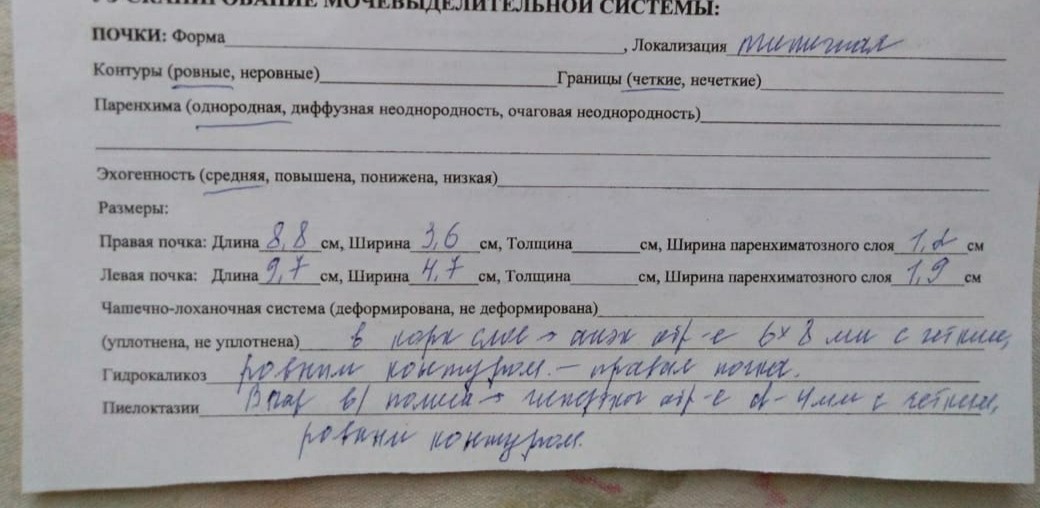 УЗ СКАНИРОВАНИЕ МОЧЕВЫДЕЛИТЕЛЬНОЙ СИСТЕМЫ:
ПОЧКИ: Форма , Локализация типичная
Контуры (ровные, неровные) Границы (четкие, нечеткие)
Паренхима (однородная, диффузная неоднородность, очаговая неоднородность)
Эхогенность (средняя, повышена, понижена, низкая)
Размеры:
Правая почка: Длина 8,8 см, Ширина 3,6 см, Толщина см, Ширина паренхиматозного слоя см
Левая почка: Длина 9,7 см, Ширина 4,7 см, Толщина см, Ширина паренхиматозного слоя 1,9 см
Чашечно-лоханочная система (деформирована, не деформирована)
(уплотнена, не уплотнена) в корк слое → анэх обр-е 6х8 мм с четким,
Гидрокаликоз ровным контуром. – правая почка.
Пиелоктазии В/ полюса → обр-е d-4мм с четким,
ровным контуром.